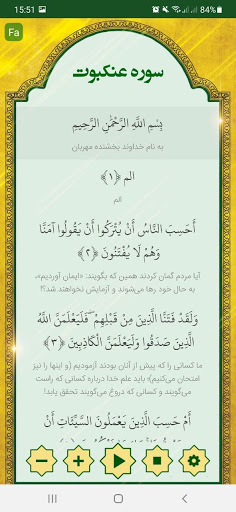 15:51
84%
Fa
سوره عنکبوت
بِسْمِ اللَّهِ الرَّحْمَٰنِ الرَّحِيمِ
به نام خداوند بخشنده مهربان
الم ﴿۱﴾
الم
أَحَسِبَ النَّاسُ أَنْ يُتْرَكُوا أَنْ يَقُولُوا آمَنَّا
وَهُمْ لَا يُفْتَنُونَ ﴿۲﴾
آیا مردم گمان کردند همین که بگویند: «ایمان آوردیم»،
به حال خود رها می‌شوند و آزمایش نخواهند شد؟!
وَلَقَدْ فَتَنَّا الَّذِينَ مِنْ قَبْلِهِمْ ۖ فَلَيَعْلَمَنَّ اللَّهُ
الَّذِينَ صَدَقُوا وَلَيَعْلَمَنَّ الْكَاذِبِينَ ﴿۳﴾
ما کسانی را که پیش از آنان بودند آزمودیم (و اینها را نیز
امتحان می‌کنیم)؛ باید علم خدا درباره کسانی که راست
می‌گویند و کسانی که دروغ می‌گویند تحقق یابد!
أَمْ حَسِبَ الَّذِينَ يَعْمَلُونَ السَّيِّئَاتِ أَنْ